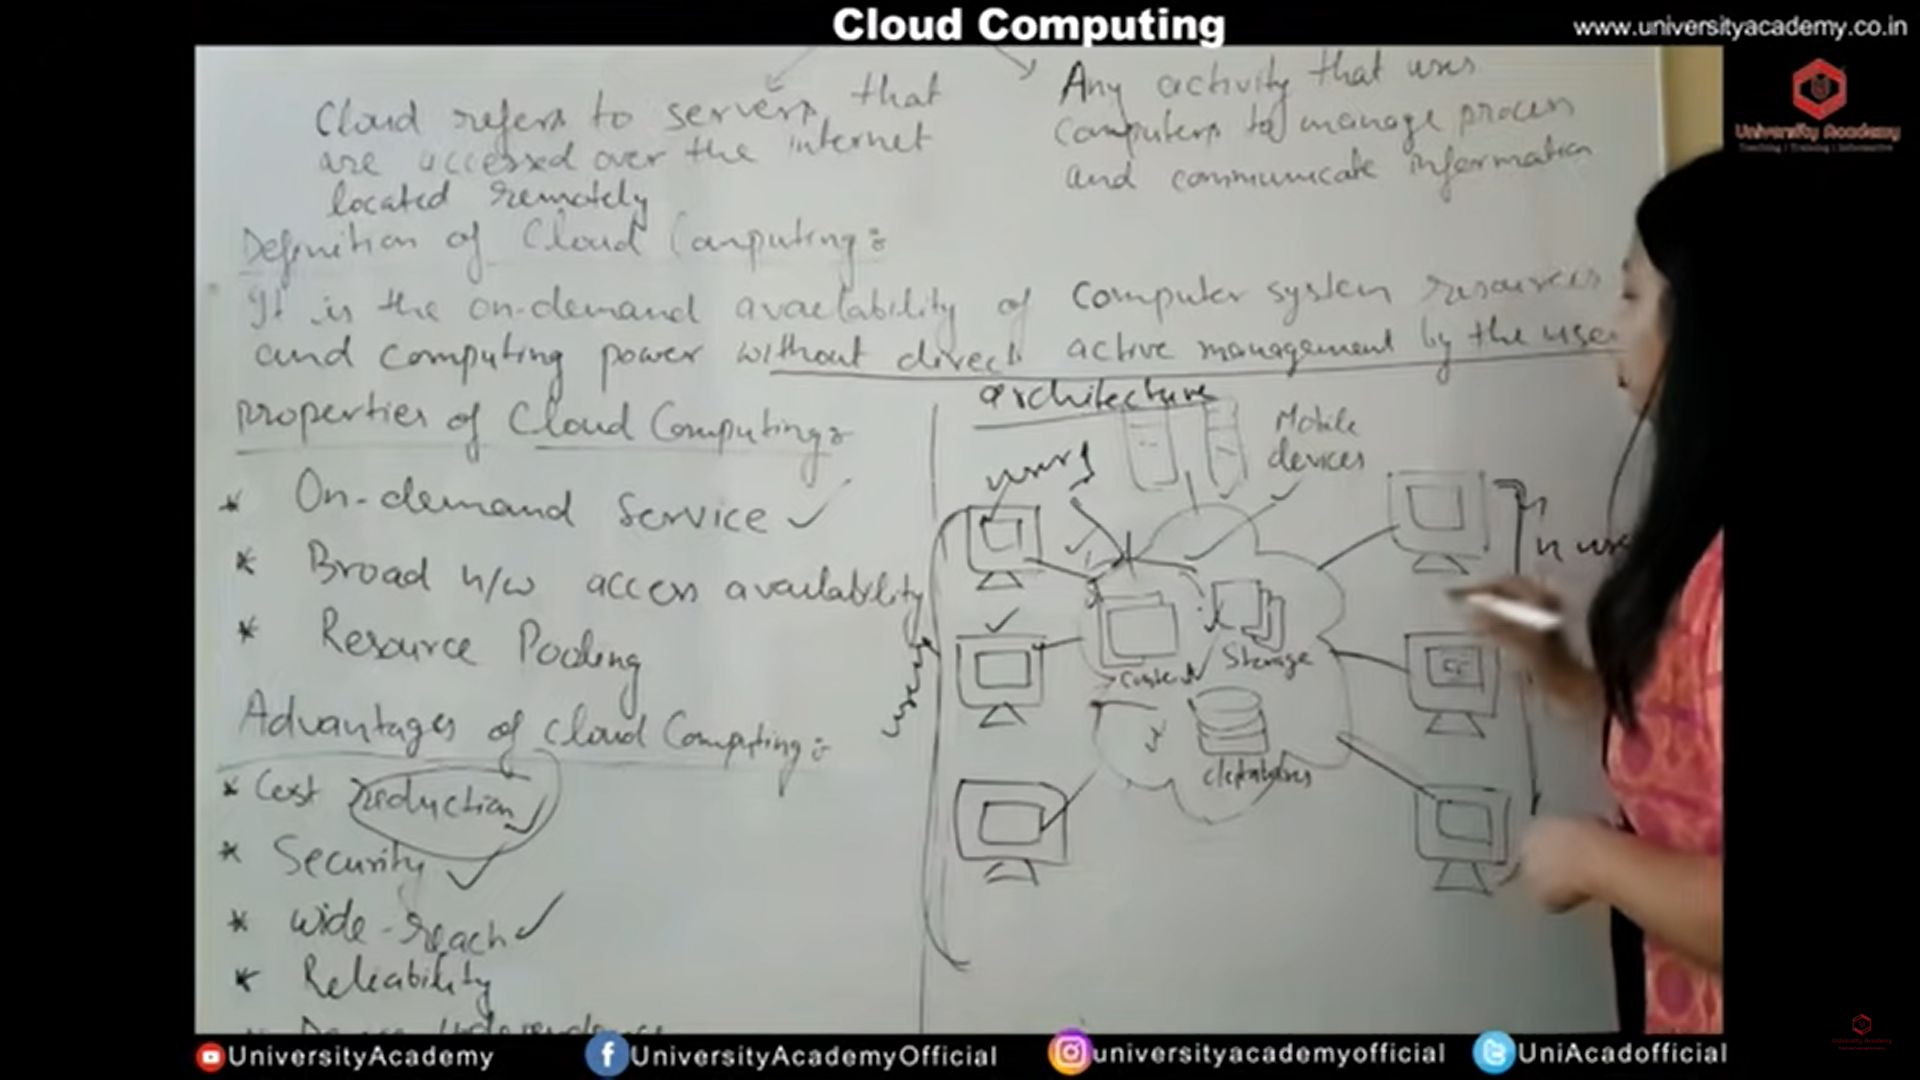 Cloud Computing
www.universityacademy.co.in
University Academy
Cloud refers to servers that
are accessed over the internet
located remotely
Any activity that uses
Computers to manage process
and communicate information
Definition of Cloud Computing:
It is the on-demand availability of computer system resources
and computing power without direct active management by the use
properties of Cloud Computing:
* On-demand Service ✓
* Broad n/w access availability
* Resource Pooling
Advantages of Cloud Computing:
* Cost reduction
* Security ✓
* wide-reach ✓
* Reliability
architecture
Mobile
devices
users
users
n use
Content
Storage
databases
UniversityAcademy
UniversityAcademyOfficial
universityacademyofficial
UniAcadofficial